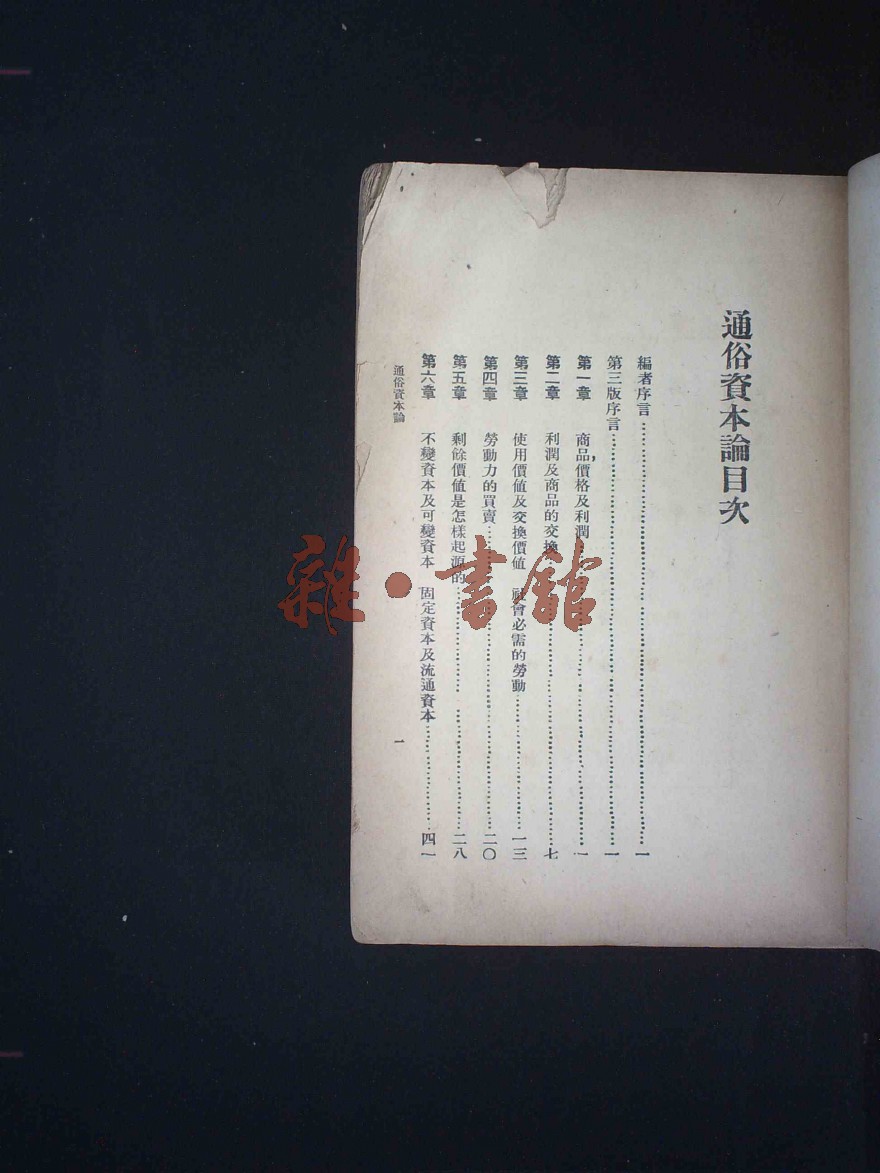 通俗資本論目次
編者序言……一
第三版序言……一
第一章　商品，價格及利潤……一
第二章　利潤及商品的交換……七
第三章　使用價値及交換價値　社會必需的勞動……一三
第四章　勞動力的買賣……二〇
第五章　剩餘價値是怎樣起源的……二八
第六章　不變資本及可變資本　固定資本及流通資本……四一
通俗資本論
一
雜·書館